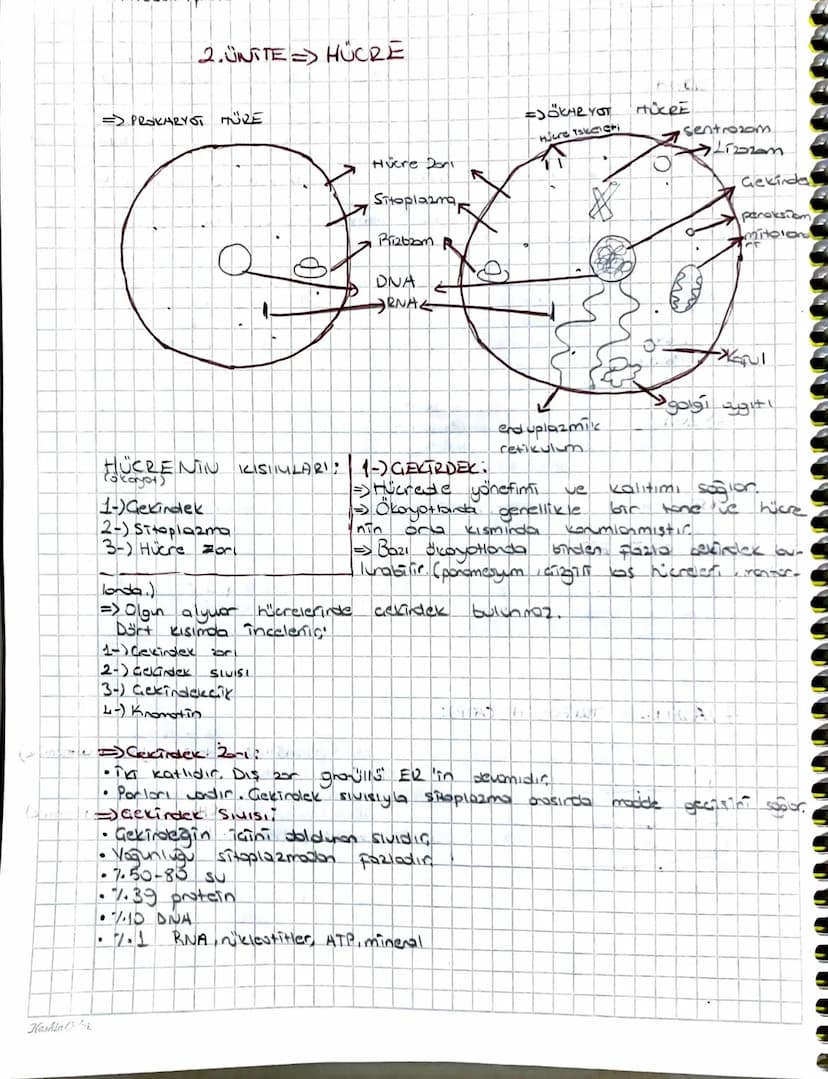 2.ÜNİTE => HÜCRE
=> PROKARYOT HÜRE
=> ÖKARYOT HÜCRE
Hücre İskeleti
Sentrozom
Lizozom
Hücre Zarı
Çekirdek
Sitoplazma
peroksizom
Ribozom
DNA
RNA
Koful
golgi aygıtı
enduplazmik
retikulum
HÜCRENİN KISIMLARI:
(ökaryot)
1-) Çekirdek
2-) Sitoplazma
3-) Hücre zarı
1-) ÇEKİRDEK:
=> Hücrede yönetimi ve kalıtımı sağlar.
=> Ökaryotlarda genellikle bir tane ve hücre
nin orta kısmında konumlanmıştır.
=> Bazı ökaryotlarda birden fazla çekirdek bu-
lunabilir. (paramesyum, çizgili kas hücreleri, mantar-
larda.)
=> Olgun alyuvar hücrelerinde çekirdek bulunmaz.
Dört kısımda incelenir;
1-) Çekirdek zarı
2-) Çekirdek sıvısı
3-) Çekirdekcik
4-) Kromatin
=> Çekirdek Zarı:
• İki katlıdır. Dış zar granüllü ER'in devamıdır.
• Porları vardır. Çekirdek sıvısıyla sitoplazma arasında madde geçişini sağlar.
=> Çekirdek Sıvısı:
• Çekirdeğin içini dolduran sıvıdır.
• Yoğunluğu sitoplazmadan fazladır.
• %50-85 su
• %39 protein
• %10 DNA
• %1 RNA, nükleotitler, ATP, mineral